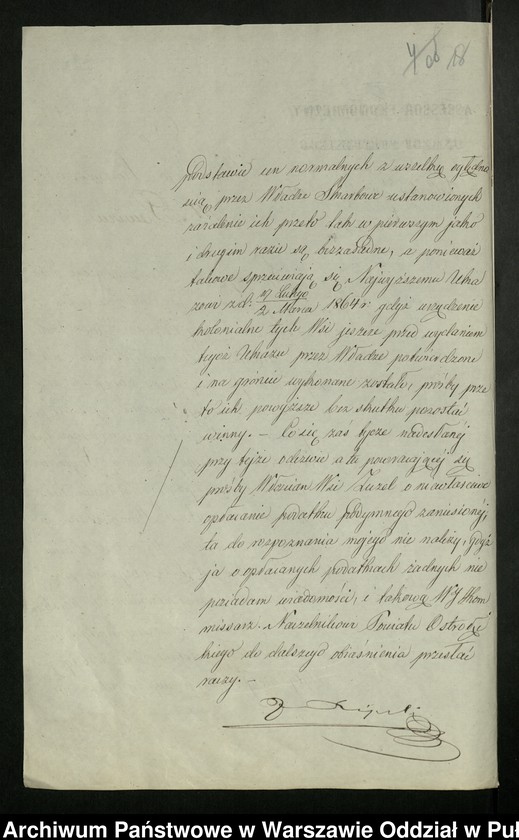 4/08 18
podstawie cen normalnych z wszelką oględno
ścią przez Władze Skarbowe ustanowionych
zażalenie ich przeto tak w pierwszym jako
i drugim razie są bezzasadne, a ponieważ
takowe sprzeciwiają się Najwyższemu Uka
zowi z d. 19 Lutego
2 Marca 1864 r gdyż urządzenie
kolonialne tych Wsi jeszcze przed wydaniem
tegoż Ukazu przez Władze potwierdzone
i na gróncie wykonane zostało, prośby prze
to ich powyższe bez skutku pozostać
winny. — Co się zaś tycze nadesłanéj
przy tejże odezwie a tu powracającéj się
prośby Włościan Wsi Zuzel o niewłaściwe
opłacanie podatku podymnego zaniesionéj,
ta do rozpoznania mojego nie należy, gdyż
ja o opłacanych podatkach żadnych nie
posiadam wiadomości, i takową WJ Kom
missarz Naczelnikowi Powiatu Ostrołę
ckiego do dalszego objaśnienia przesłać
raczy. —
Archiwum Państwowe w Warszawie Oddział w Puł